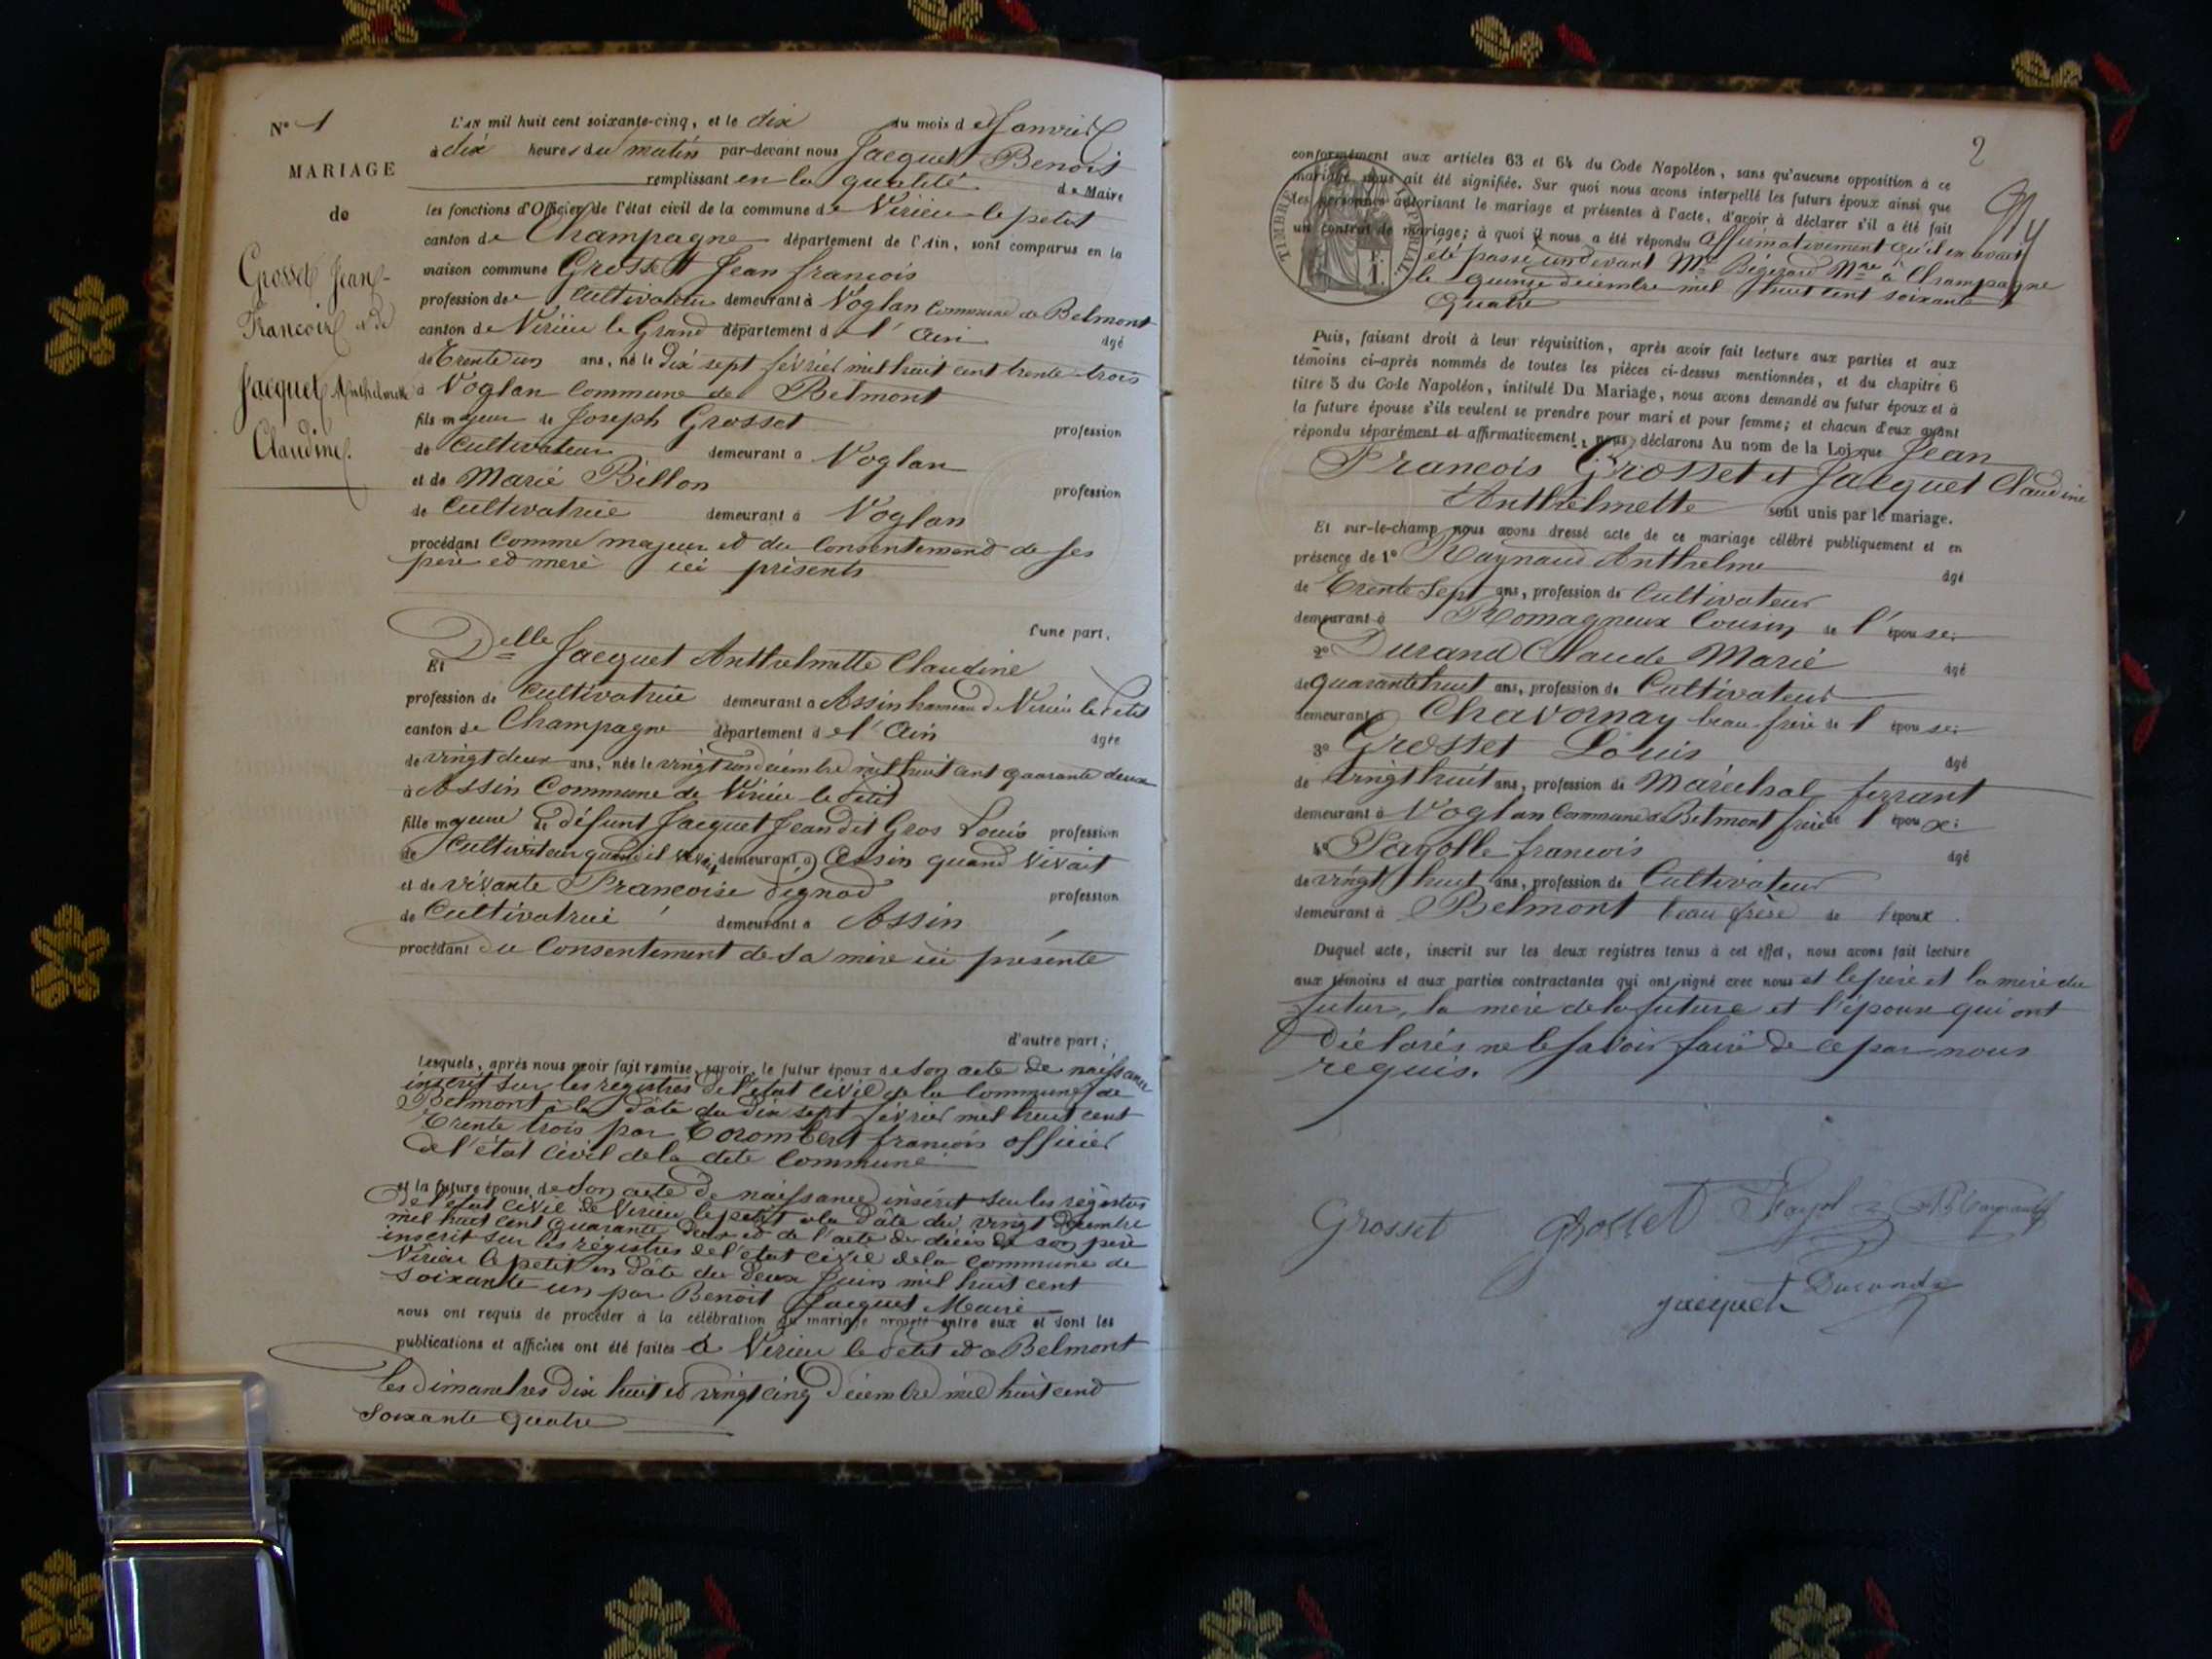 N° 1
MARIAGE
de
Grosset Jean-
Francois et de
Jacquet Anthelmette
Claudine.
L'AN mil huit cent soixante-cinq, et le dix du mois de Janvier
à dix heures du matin par-devant nous Jacquet Benoit
remplissant en la qualité de Maire
les fonctions d'Officier de l'état civil de la commune de Virieu le petit
canton de Champagne département de l'Ain, sont comparus en la
maison commune Grosset Jean francois
profession de Cultivateur demeurant à Voglan Commune de Belmont
canton de Virieu le Grand département de l'Ain âgé
de Trente un ans, né le dix sept février mil huit cent trente trois
à Voglan Commune de Belmont
fils majeur de Joseph Grosset profession
de Cultivateur demeurant à Voglan
et de Marie Billon profession
de Cultivatrice demeurant à Voglan
procédant Comme majeur et du Consentement de ses
père et mère ici présents
d'une part,
Et Delle Jacquet Anthelmette Claudine
profession de Cultivatrice demeurant à Assin hameau de Virieu le Petit
canton de Champagne département de l'Ain âgée
de vingt deux ans, née le vingt un decembre mil huit cent quarante deux
à Assin Commune de Virieu le Petit
fille majeure de défunt Jacquet Jean dit Gros Louis profession
de Cultivateur quand il vivait demeurant à Assin quand vivait
et de vivante Francoise Pignod profession
de Cultivatrice demeurant à Assin
procédant du Consentement de sa mère ici présente
d'autre part;
Lesquels, après nous avoir fait remise, savoir, le futur époux de son acte de naissance
inscrit sur les registres de l'état civil de la Commune de
Belmont à la date du dix sept février mil huit cent
Trente trois par Corombert francois officier
de l'état Civil de la dite Commune
et la future épouse, de son acte de naissance inscrit sur les registres
de l'état civil de Virieu le petit à la date du vingt decembre
mil huit cent quarante deux et de l'acte de décès de son père
inscrit sur les régistres de l'état civil de la Commune de
Virieu le petit en date du deux Juin mil huit cent
soixante un par Benoit Jacquet Maire
nous ont requis de procéder à la célébration du mariage projeté entre eux et dont les
publications et affiches ont été faites à Virieu le Petit et à Belmont
les dimanches dix huit et vingt cinq decembre mil huit cent
soixante quatre
2
conformément aux articles 63 et 64 du Code Napoléon, sans qu'aucune opposition à ce
mariage nous ait été signifiée. Sur quoi nous avons interpellé les futurs époux ainsi que
les personnes autorisant le mariage et présentes à l'acte, d'avoir à déclarer s'il a été fait
un contrat de mariage; à quoi il nous a été répondu affirmativement qu'il en avait
été passé un devant Me Nre à Champagne
le quinze decembre mil huit cent soixante
quatre
TIMBRE IMPERIAL
Puis, faisant droit à leur réquisition, après avoir fait lecture aux parties et aux
témoins ci-après nommés de toutes les pièces ci-dessus mentionnées, et du chapitre 6
titre 5 du Code Napoléon, intitulé Du Mariage, nous avons demandé au futur époux et à
la future épouse s'ils veulent se prendre pour mari et pour femme; et chacun d'eux ayant
répondu séparément et affirmativement, nous déclarons Au nom de la Loi que Jean
Francois Grosset et Jacquet Claudine
Anthelmette sont unis par le mariage.
Et sur-le-champ nous avons dressé acte de ce mariage célébré publiquement et en
présence de 1° Raynaud Anthelme âgé
de Trente Sept ans, profession de Cultivateur
demeurant à Romagneux Cousin de l'épouse;
2° Durand Claude Marie âgé
de quarante huit ans, profession de Cultivateur
demeurant à Chavornay beau-frère de l'épouse;
3° Grosset Louis âgé
de vingt huit ans, profession de Maréchal ferrant
demeurant à Voglan Commune de Belmont frère de l'époux;
4° francois âgé
de vingt huit ans, profession de Cultivateur
demeurant à Belmont beau frère de l'époux.
Duquel acte, inscrit sur les deux registres tenus à cet effet, nous avons fait lecture
aux témoins et aux parties contractantes qui ont signé avec nous et le père et la mère du
futur, la mère de la future et l'épouse qui ont
déclarés ne le savoir faire de ce par nous
requis.
Grosset Grosset Raynaud
Jacquet Durand